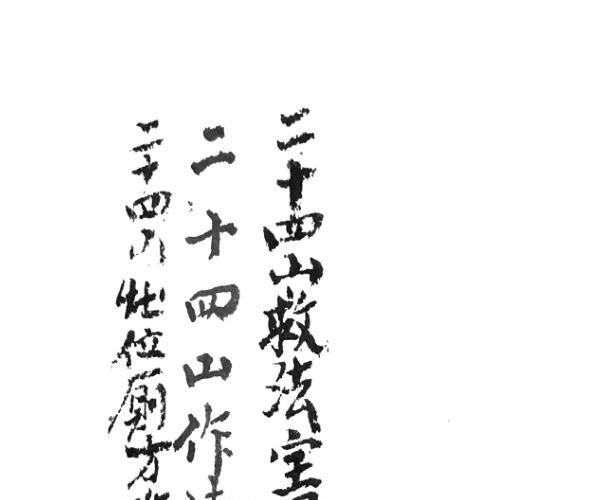 二十四山救法全
二十四山作法
二十四山灶位厕方